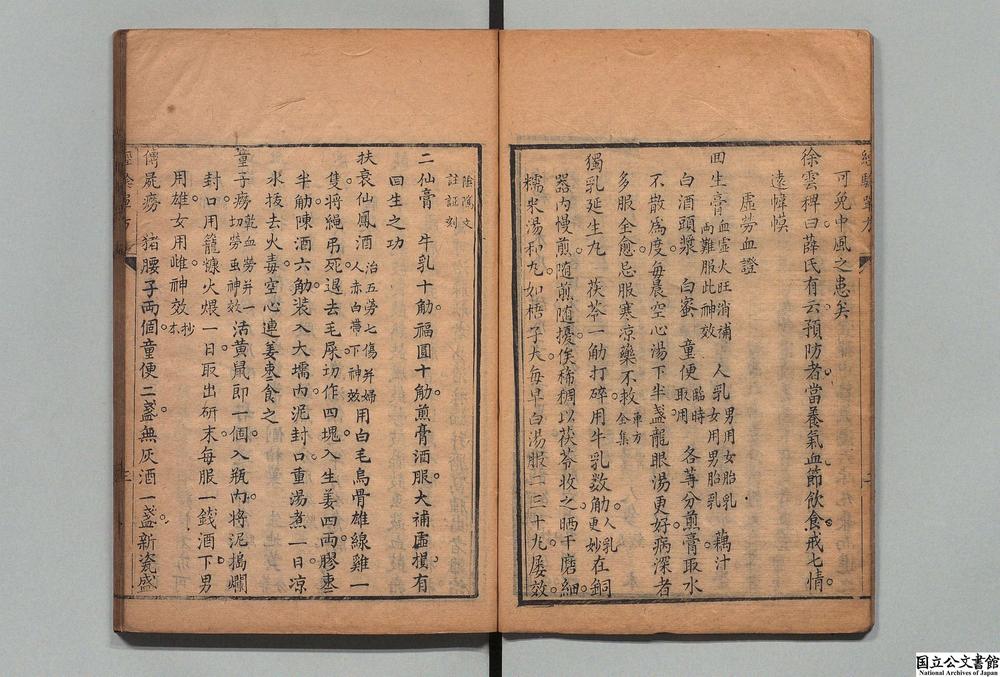 可免中風之患矣
徐雲稗曰薛氏有云預防者當養氣血節飲食戒七情
遠幃幙
虛勞血證
回生膏 血虛火旺消補兩難服此神效 人乳 男用女胎乳女用男胎乳 藕汁
白酒頭漿 白蜜 童便 臨時取用 各等分煎膏取水
不散為度每晨空心湯下半盞龍眼湯更好病深者
多服全愈忌服寒涼藥不救 東方全集
獨乳延生丸 茯苓一觔打碎用牛乳數觔 人乳更妙 在銅
器內慢煎隨煎隨擾俟稀稠以茯苓收之晒干磨細
糯米湯和丸如梧子大每早白湯服二三十丸屢效
二仙膏 牛乳十觔福圓十觔煎膏酒服大補虛損有
回生之功 陰隲文註証刻
扶衰仙鳳酒 治五勞七傷并婦人赤白帶下神效 用白毛烏骨雄線雞一
隻將繩弔死退去毛屎切作四塊入生姜四兩膠棗
半觔陳酒六觔裝入大壜內泥封口重湯煮一日凉
水拔去火毒空心連姜棗食之
童子癆 乾血勞并一切勞虫神效 活黃鼠郎一個入瓶內將泥搗爛
封口用籠糠火煨一日取出研末每服一錢酒下男
用雄女用雌神效 抄本
傳屍癆 猪腰子兩個童便二盞無灰酒一盞新瓷盛
国立公文書館
National Archives of Japan